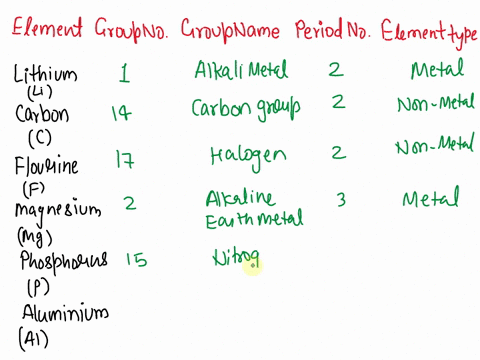 Element GroupNo. GroupName Period No. Element type
Lithium (Li) 1 Alkali Metal 2 Metal
Carbon (C) 14 Carbon group 2 Non-Metal
Flourine (F) 17 Halogen 2 Non-Metal
Magnesium (Mg) 2 Alkaline Earth metal 3 Metal
Phosphorus (P) 15 Nitrog
Aluminium (Al)